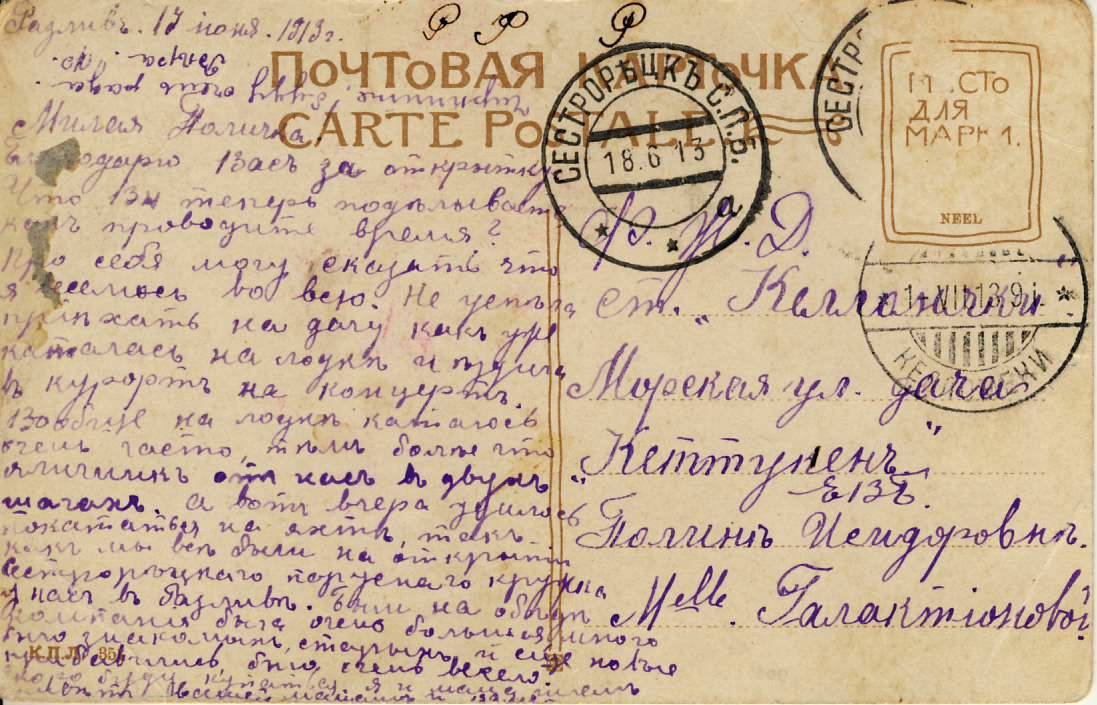 Разливъ. 17 iюня. 1913г.
Р Р Р
ПОЧТОВАЯ КАРТОЧКА
CARTE POSTALE
Пишите, буду очень рада.
СЕСТРОРѢЦКЪ С.П.Б.
18.6.13
а
СЕСТРОР
МѢСТО
ДЛЯ
МАРКИ.
NEEL
Милая Поличка!
Благодарю Васъ за открытку
Что Вы теперь подѣлываете
какъ проводите время?
Про себя могу сказать что
я веселюсь во всю. Не успѣла
пріѣхать на дачу какъ уже
каталась на лодкѣ и ѣздила
въ курортъ на концертъ.
Вообще на лодкѣ катаюсь
очень часто, тѣмъ болѣе что
отъ насъ въ двухъ
шагахъ, а вотъ вчера удалось
покататься на яхтѣ, такъ
какъ мы всѣ были на открытіи
Сестрорѣцкаго паруснаго кружка
у насъ въ Разливѣ. Были на
компанія была очень большая много
было знакомыхъ, старыхъ и еще новые
прибавились, было очень весело.
я и мама шлемъ
Вашей мамашѣ и
К.П.Л. 35
Ф. Ж. Д.
ст. „Келломяки"
VII.13.9
Морская ул. дача
„Кеттуненъ"
ЕВБ
Полинѣ Исидоровнѣ.
Mlle Галактіоновой